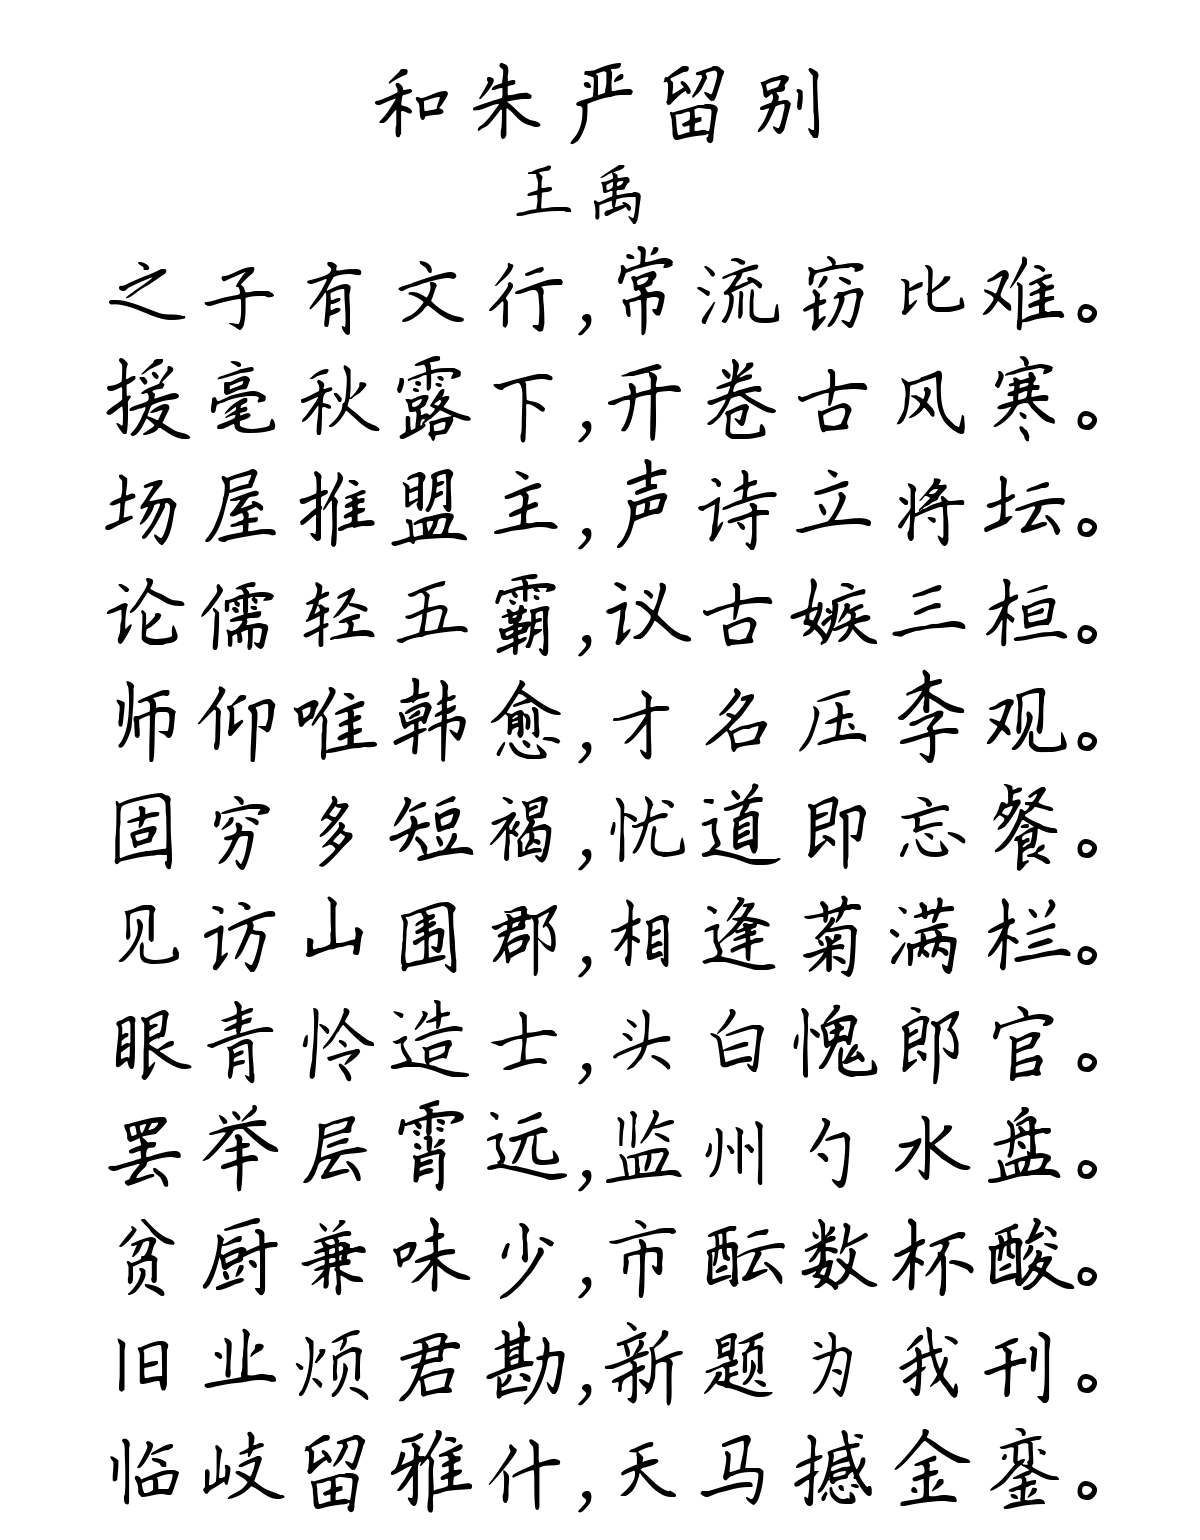 和朱严留别
王禹
之子有文行,常流窃比难。
援毫秋露下,开卷古风寒。
场屋推盟主,声诗立将坛。
论儒轻五霸,议古嫉三桓。
师仰唯韩愈,才名压李观。
固穷多短褐,忧道即忘餐。
见访山围郡,相逢菊满栏。
眼青怜造士,头白愧郎官。
罢举层霄远,监州勺水盘。
贫厨兼味少,市酝数杯酸。
旧业烦君勘,新题为我刊。
临岐留雅什,天马撼金銮。